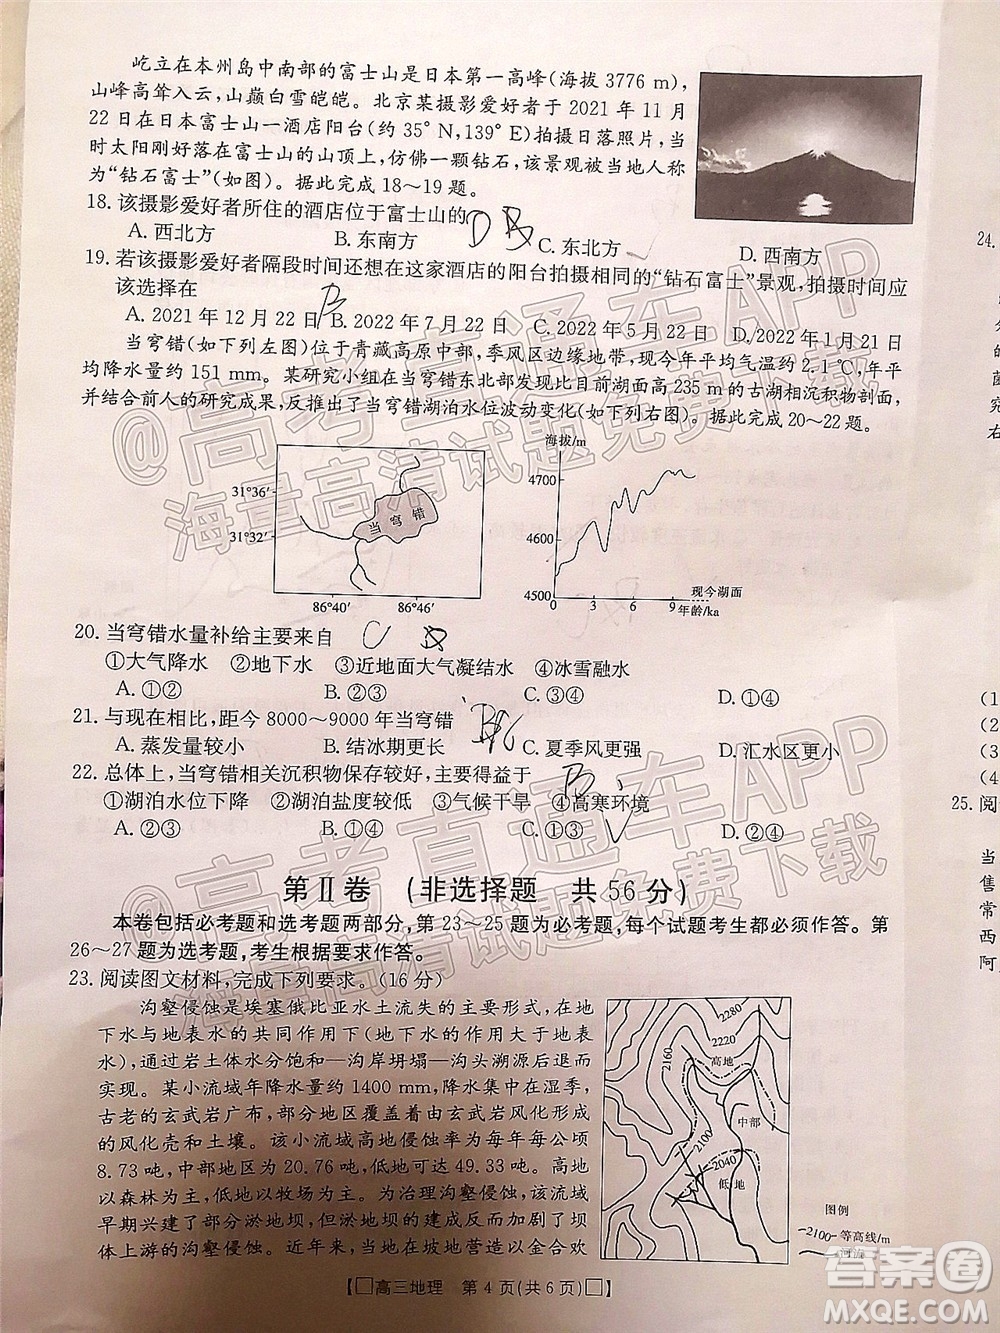 屹立在本州岛中南部的富士山是日本第一高峰(海拔 3776 m),
山峰高耸入云,山巅白雪皑皑。北京某摄影爱好者于 2021 年 11 月
22 日在日本富士山一酒店阳台(约 35° N,139° E)拍摄日落照片,当
时太阳刚好落在富士山的山顶上,仿佛一颗钻石,该景观被当地人称
为“钻石富士”(如图)。据此完成 18～19 题。
18. 该摄影爱好者所住的酒店位于富士山的
A. 西北方 B. 东南方 C. 东北方 D. 西南方
19. 若该摄影爱好者隔段时间还想在这家酒店的阳台拍摄相同的“钻石富士”景观,拍摄时间应
该选择在
A. 2021 年 12 月 22 日 B. 2022 年 7 月 22 日 C. 2022 年 5 月 22 日 D. 2022 年 1 月 21 日
当穹错(如下列左图)位于青藏高原中部,季风区边缘地带,现今年平均气温约 2.1℃,年平
均降水量约 151 mm。某研究小组在当穹错东北部发现比目前湖面高 235 m 的古湖相沉积物剖面,
并结合前人的研究成果,反推出了当穹错湖泊水位波动变化(如下列右图)。据此完成 20～22 题。
31°36′
31°32′
86°40′ 86°46′
当穹错
海拔/m
4700
4600
4500
0 3 6 9 年龄/ka
现今湖面
20. 当穹错水量补给主要来自
①大气降水 ②地下水 ③近地面大气凝结水 ④冰雪融水
A. ①② B. ②③ C. ①③ D. ①④
21. 与现在相比,距今 8000～9000 年当穹错
A. 蒸发量较小 B. 结冰期更长 C. 夏季风更强 D. 汇水区更小
22. 总体上,当穹错相关沉积物保存较好,主要得益于
①湖泊水位下降 ②湖泊盐度较低 ③气候干旱 ④高寒环境
A. ②③ B. ①④ C. ①③ D. ②④
第Ⅱ卷 (非选择题 共 56 分)
本卷包括必考题和选考题两部分,第 23～25 题为必考题,每个试题考生都必须作答。第
26～27 题为选考题,考生根据要求作答。
23. 阅读图文材料,完成下列要求。(16 分)
沟壑侵蚀是埃塞俄比亚水土流失的主要形式,在地
下水与地表水的共同作用下(地下水的作用大于地表
水),通过岩土体水分饱和—沟岸坍塌—沟头溯源后退而
实现。某小流域年降水量约 1400 mm,降水集中在湿季,
古老的玄武岩广布,部分地区覆盖着由玄武岩风化形成
的风化壳和土壤。该小流域高地侵蚀率为每年每公顷
8.73 吨,中部地区 20.76 吨,低地可达 49.33 吨。高地
以森林为主,低地以牧场为主。为治理沟壑侵蚀,该流域
早期兴建了部分淤地坝,但淤地坝的建成反而加剧了坝
体上游的沟壑侵蚀。近年来,当地在坡地营造以金合欢
2280
2220
2160
高地
中部
2100
2040
低地
图例
2100 等高线/m
河流
【□高三地理 第 4 页(共 6 页)□】
24.
(1
(2
(3
(4
25. 阅
当
售
常
西
阿
@高考直通车APP
海量高清试题免费下载
@高考直通车APP
海量高清试题免费下载
答案圈
MXQE.COM